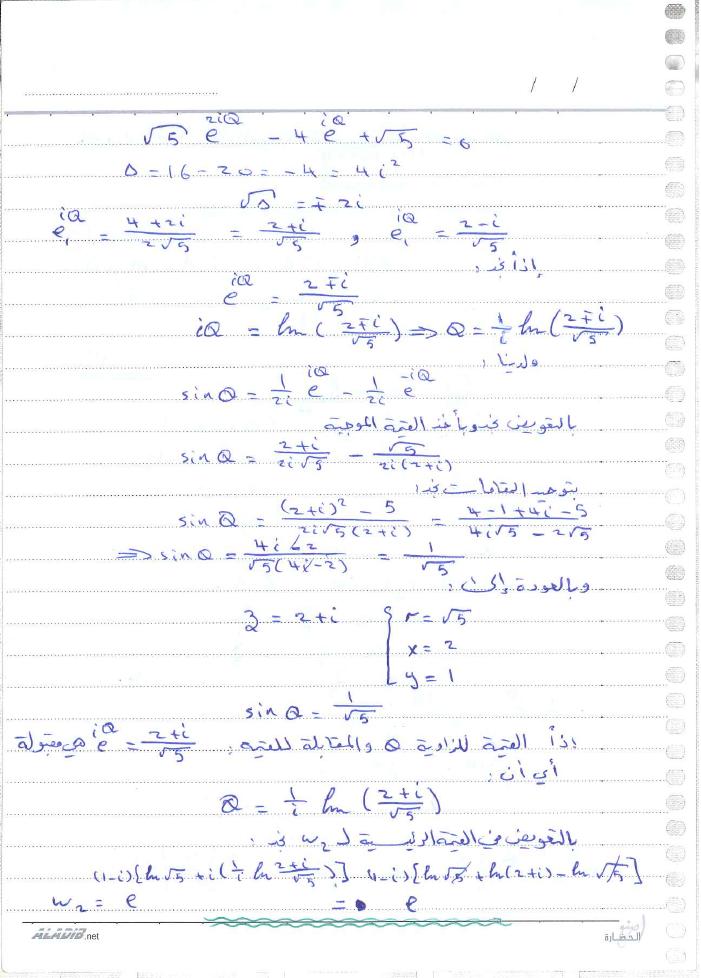 / /
√5 e^{2iθ} - 4 e^{iθ} + √5 = 0
Δ = 16 - 20 = -4 = 4i²
√Δ = ∓ 2i
e₁^{iθ} = (4+2i)/(2√5) = (2+i)/√5 , e₁^{iθ} = (2-i)/√5
إذاً نجد :
e^{iθ} = (2∓i)/√5
iθ = ln((2∓i)/√5) ⇒ θ = 1/i ln((2∓i)/√5)
ولدينا :
sin θ = 1/2i e^{iθ} - 1/2i e^{-iθ}
بالتعويض وبأخذ القيمة الموجبة
sin θ = (2+i)/(2i√5) - √5/(2i(2+i))
بتوحيد المقامات نجد :
sin θ = ((2+i)² - 5)/(2i√5(2+i)) = (4-1+4i-5)/(4i√5 - 2√5)
⇒ sin θ = (4i-2)/(√5(4i-2)) = 1/√5
وبالعودة إلى :
z = 2+i { r = √5
x = 2
y = 1
sin θ = 1/√5
إذاً القيمة للزاوية θ والمقابلة للقيمة e^{iθ} = (2+i)/√5 هي مقبولة
أي أن :
θ = 1/i ln((2+i)/√5)
بالتعويض في القيمة الرئيسية لـ w₂ نجد :
w₂ = e^{(1-i)[ln√5 + i(1/i ln (2+i)/√5)]} = e^{(1-i)[ln√5 + ln(2+i) - ln√5]}
ALADIB.net
الحضارة